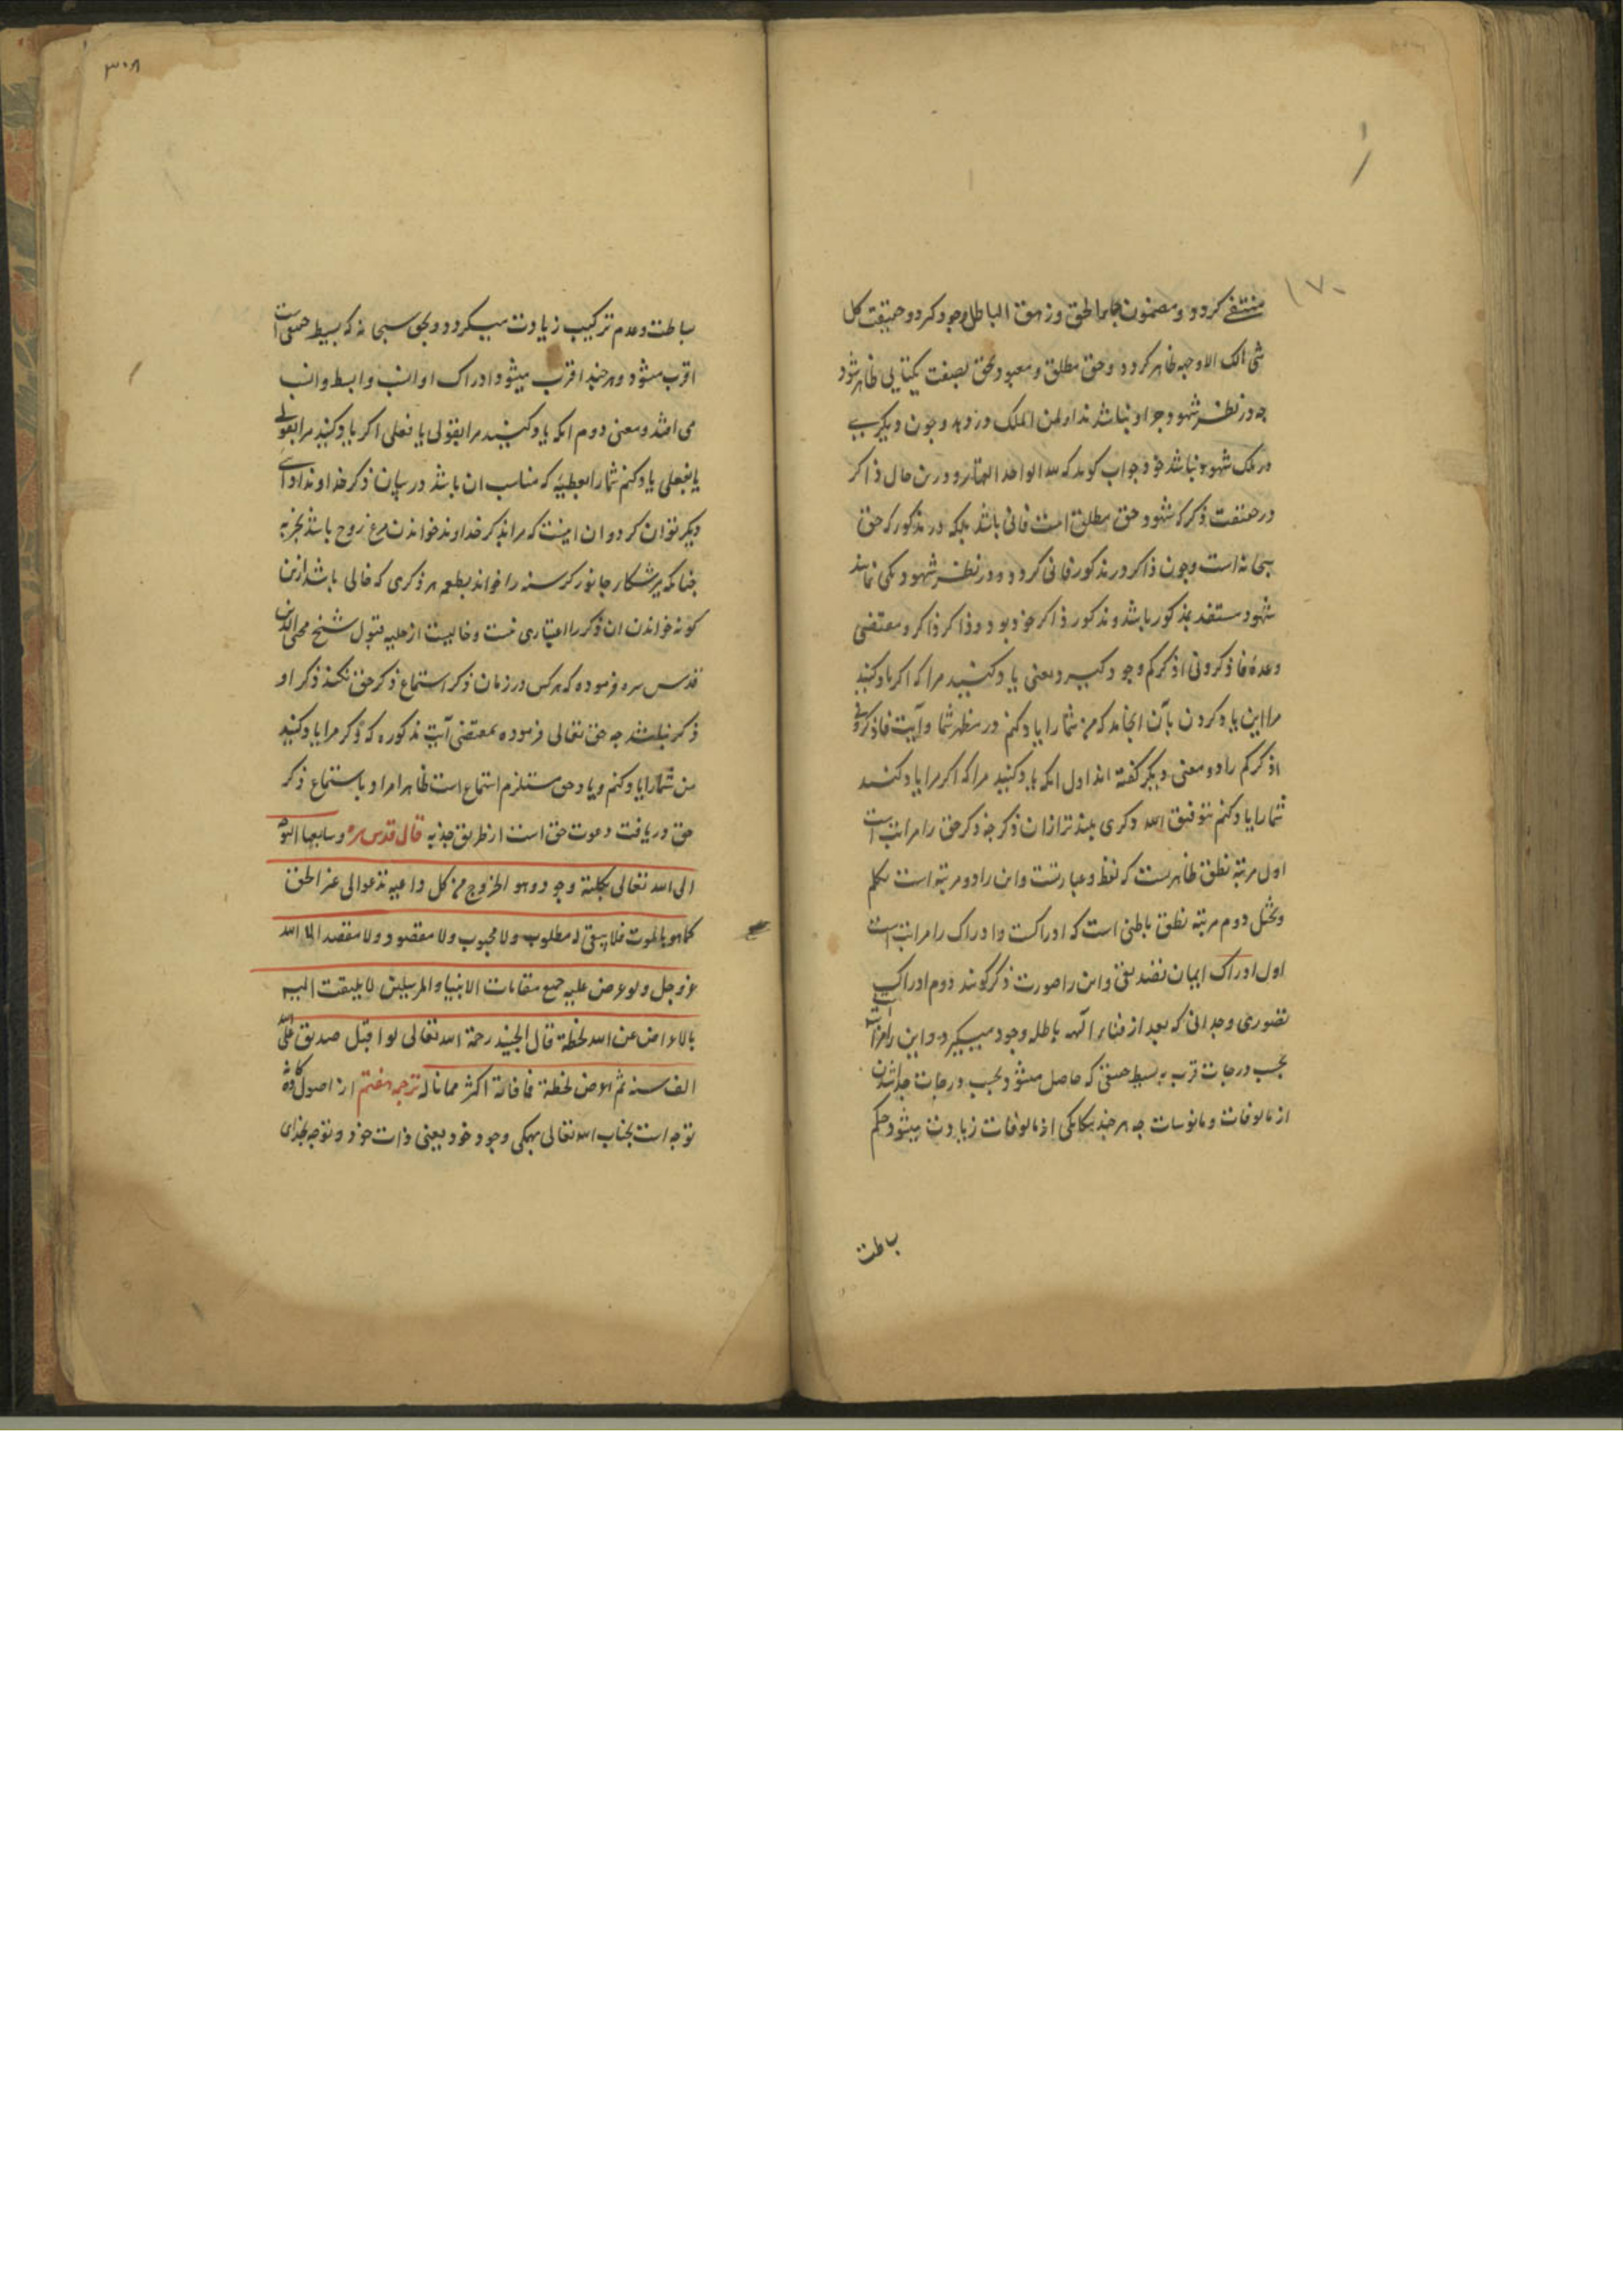 ۱۷۰
منتفی کردد و مضمون جاء الحق و زهق الباطل وجود کیرد و حقیقت کل
شی هالک الا وجهه ظاهر کردد و حق مطلق و معبود بحق بصفت یکتایی ظاهر شود
چه در نظر شهود جز او نباشد ندا و لمن الملک در دهد و چون دیکری
در ملک شهود نباشد خود جواب کوید که لله الواحد القهار و درین حال ذاکر
در حقیقت ذکر که شهود حق مطلق است فانی باشد بلکه در مذکور که حق
سبحانه است و چون ذاکر در مذکور فانی کردد و در نظر شهود یکی نماید
شهود مستفید مذکور باشد و مذکور ذاکر خود بود و ذاکر ذاکر و مقتضی
وعده فاذکرونی اذکرکم وجود کیرد یعنی یاد کنید مرا که اکر یاد کنید
مرا این یاد کردن بآن انجامد که من شما را یاد کنم در مظهر شما و آیت فاذکرونی
اذکرکم را دو معنی دیکر کفته اند اول انکه یاد کنید مرا که اکر مرا یاد کنید
شما را یاد کنم بتوفیق الله ذکری بلندتر از ان ذکر چه ذکر حق را مراتب است
اول مرتبه نطق ظاهریست که لفظ و عبارتست و این را دو مرتبه است تکلم
و تخیل دوم مرتبه نطق باطنی است که ادراکست و ادراک را مراتب است
اول ادراک ایمان تصدیقی و این را صورت ذکر کویند دوم ادراک
تصوری وجدانی که بعد از فناء الهه باطله وجود میکیرد و این را مراتب
بحسب درجات قرب به بسیط حقیقی که حاصل میشود و بحسب درجات جدا شدن
از مالوفات و مانوسات چه هر چند بیکانکی از مالوفات زیادت میشود حکم
بساطت
۳۰۸
بساطت و عدم ترکیب زیادت میکردد و بحق سبحانه که بسیط حقیقی است
اقرب میشود و هر چند اقرب میشود ادراک او انسب و ابسط و انسب
می افتد و معنی دوم انکه یاد کنید مرا بقولی یا فعلی اکر یاد کنید مرا بقولی
یا بفعلی یاد کنم شما را بعطیه که مناسب ان باشد در بیان ذکر خداوند ادای
دیکر توان کرد و ان اینست که مراد بذکر خداوند خواندن مرغ روح باشد بجذبه
چنانکه میرشکار جانور کرسنه را خواند بطعمه هر ذکری که خالی باشد ازین
کونه خواندن ان ذکر را اعتباری نیست و خالیست از حلیه قبول شیخ محیی الدین
قدس سره فرموده که هر کس در زمان ذکر استماع ذکر حق نکند ذکر او
ذکر نباشد چه حق تعالی فرموده بمقتضی آیت مذکوره که ذکر مرا یاد کنید
من شما را یاد کنم و یاد حق مستلزم استماع است ظاهرا مراد باستماع ذکر
حق دریافت دعوت حق است از طریق جذبه قال قدس سره و سابعها التوجه
الی الله تعالی بکلیة وجوده و هو الخروج من کل داعیه تدعو الی غیر الحق
کما هو بالموت فلا یبقی له مطلوب و لا محبوب و لا مقصود و لا مقصد الا الله
عز و جل و لو عرض علیه جمیع مقامات الانبیا و المرسلین لا یلتفت الیه
بالاعراض عن الله لحظة قال الجنید رحمة الله تعالی لو اقبل صدیق علی الله
الف سنه ثم اعرض لحظة فما فاته اکثر مما ناله ترجمه هفتم از اصول کاده
توجه است بجناب الله تعالی بهمکی وجود خود یعنی ذات خود و توجه بخدای